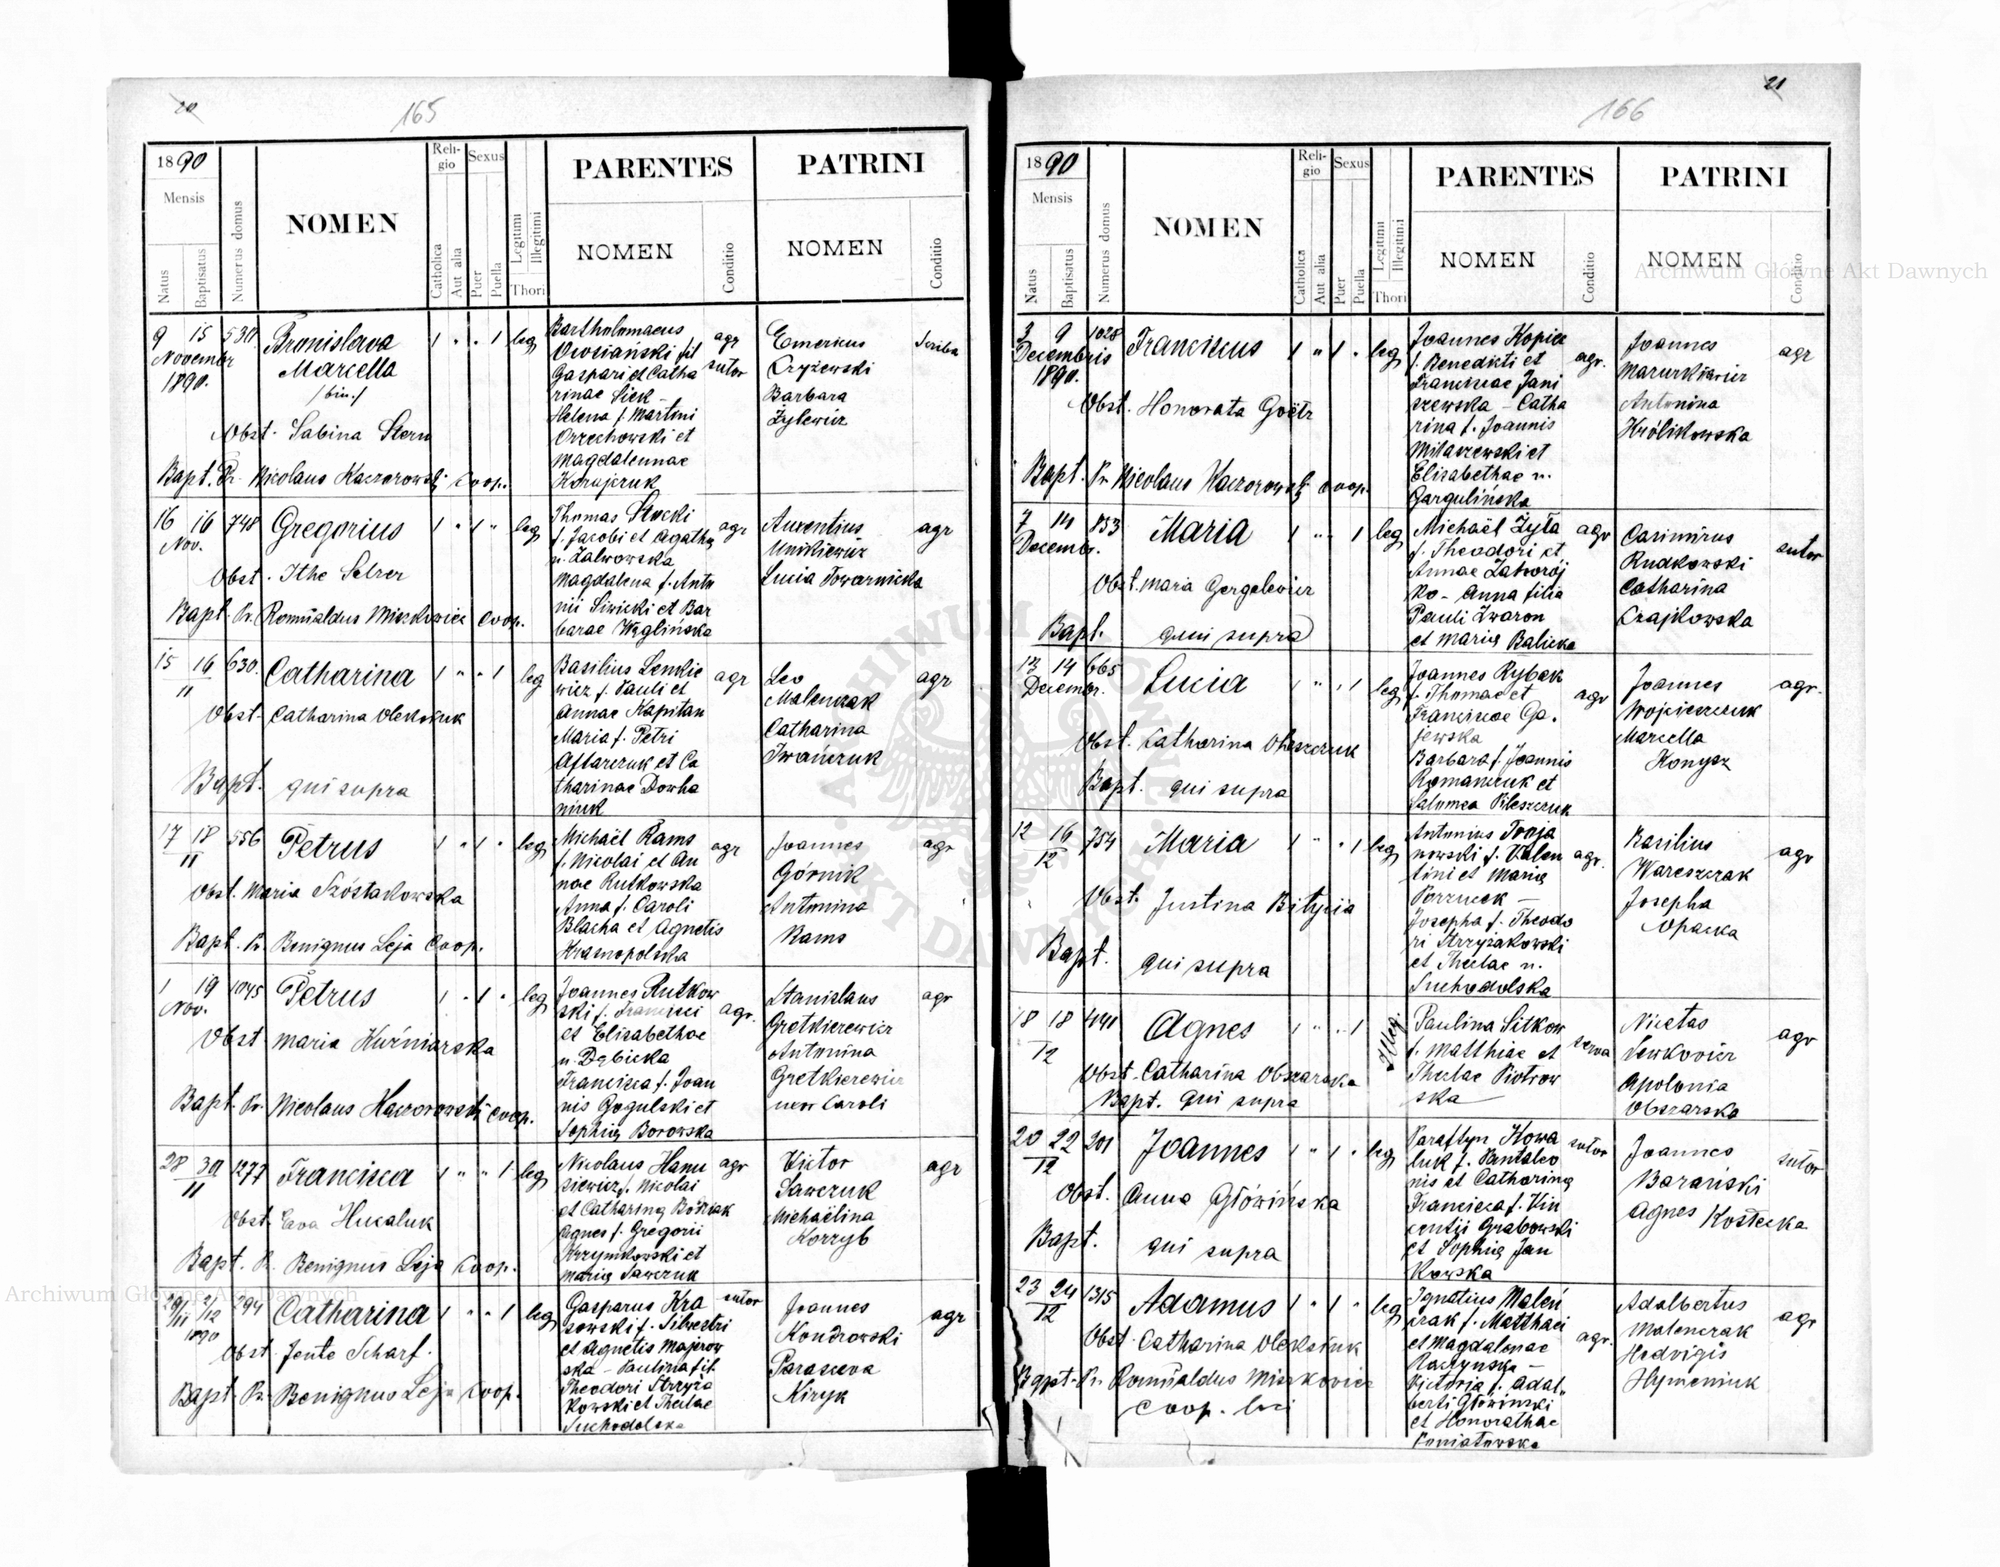 20
165
1890
Mensis
Natus
Baptisatus
Numerus domus
NOMEN
Religio
Catholica
Aut alia
Sexus
Puer
Puella
Legitimi
Illegitimi
Thori
PARENTES
NOMEN
Conditio
PATRINI
NOMEN
Conditio
9 15 530.
Novembr
1890.
Bronislava
Marcella
/bin./
1 " " 1 leg
Obst. Sabina Stern
Bapt. Pr. Nicolaus Kaczorowski Coop.
Bartholomaeus
Owsiański fil
Gaspari et Catha
rinae Siek -
Helena f. Martini
Orzechowski et
Magdalennae
agr
sutor
Emericus
Czyżewski
Barbara
Żylewicz
Scriba
16 16 748
Nov.
Gregorius
1 " 1 " leg
Obst. Ithe Selzer
Bapt. Pr. Romüaldus Miszkiewicz Coop.
Thomas Stocki
f. Jacobi et Agathą
n. Zalworska
Magdalena f. Anto
nii Siwicki et Bar
barae Węglińska
agr
Auxentius
Unikiewicz
Lucia Towarnicka
agr
15 16 630.
11
Catharina
1 " " 1 leg
Obst. Catharina Oleksiuk
Bapt. qui supra
Basilius Lenkie
wicz f. Pauli et
Annae Kapitan
Maria f. Petri
et Ca
tharinae Dowha
niuk
agr
Leo
Malenczak
Catharina
Iwańczuk
agr
17 18 556
11
Petrus
1 " 1 " leg
Obst. Maria Szóstakowska
Bapt. Pr. Benignus Leja Coop.
Michaël Rams
f. Nicolai et An
nae Rutkowska
Anna f. Caroli
Blacha et Agnetis
Krasnopolska
agr
Joannes
Górnik
Antonina
Rams
agr
1 19 1045
Nov.
Petrus
1 " 1 " leg
Obst Maria Kuźniarska
Bapt. Pr. Nicolaus Kaczorowski Coop.
Joannes Rutkow
ski f. Francisci
et Elisabethae
n. Dębicka
Francisca f. Joan
nis Gogulski et
Sophią Borowska
agr.
Stanislaus
Gretkierewicz
Antonina
Gretkierewicz
uxor Caroli
agr
28 30 1277
11
Francisca
1 " " 1 leg
Obst. Eva Hucaluk
Bapt. Pr. Benignus Leja Coop.
Nicolaus Hanu
siewicz f. Nicolai
et Cathariną
Agnes f. Gregorii
Krzymkowski et
Marią Sawczuk
agr
Victor
Sawczuk
Michaëlina
Korzyb
agr
29/11 2/12 294
1890
Catharina
1 " " 1 leg
Obst. Jente Scharf.
Bapt Pr. Benignus Leja Coop.
Gasparus Kra
sowski f. Silvestri
et Agnetis Majerow
ska - Paulina fil
Theodori Strzyża
kowski et Theclae
Suchodolska
sutor
Joannes
Kondrowski
Parasceva
Kiryk
agr
21
166
1890
Mensis
Natus
Baptisatus
Numerus domus
NOMEN
Religio
Catholica
Aut alia
Sexus
Puer
Puella
Legitimi
Illegitimi
Thori
PARENTES
NOMEN
Conditio
PATRINI
NOMEN
Conditio
3 9 1028
Decembris
1890.
Franciscus
1 " 1 " leg
Obst. Honorata Goëtz
Bapt. Pr. Nicolaus Kaczorowski Coop.
Joannes Kopice
f. Benedicti et
Franciscae Jani
szewska - Catha
rina f. Joannis
Mitaszewski et
Elisabethae n.
Gargulińska
agr.
Joannes
Mazurkiewicz
Antonina
Królikowska
agr
7 14 833
Decembr.
Maria
1 " " 1 leg
Obst. Maria Gergelevicz
Bapt. qui supra
Michaël Żyła
f. Theodori et
Annae Zatworój
ko - Anna filia
Pauli Zwaron
et Marią Balicka
agr
Casimirus
Rudkowski
Catharina
Czajkowska
sutor
13 14 665
Decembr.
Lucia
1 " " 1 leg
Obst. Catharina Oleszczuk
Bapt. qui supra
Joannes Rybak
f. Thomae et
Franciscae Ga-
jewska
Barbara f. Joannis
Romanczuk et
Salomea Pileszczuk
agr
Joannes
Wojcieszczuk
Marcella
Konysz
agr.
12 16 754
12
Maria
1 " " 1 leg
Obst. Justina Bitycia
Bapt. qui supra
Antonius Troja
nowski f. Valen
tini et Marią
Porzucek -
Josepha f. Theodo
ri Strzyżakowski
et Theclae n.
Suchodolska
agr.
Basilius
Wareszczak
Josepha
Opacka
agr
18 18 441
12
Agnes
1 " " 1 Illeg.
Obst. Catharina Obszarska
Bapt. qui supra
Paulina Sitkow
f. Matthiae et
Theclae Piotrow
ska
serva
Nicetas
Lewkovicz
Apolonia
Obszarska
agr
20 22 201
12
Joannes
1 " 1 " leg
Obst. Anna Głowińska
Bapt. qui supra
Paraftyn Kowa
luk f. Pantaleo
nis et Cathariną
Francisca f. Vin
centii Grabowski
et Sophią Jan
kowska
sutor
Joannes
Barański
Agnes Kostecka
sutor
23 24 1315
12
Adamus
1 " 1 " leg
Obst. Catharina Oleksiuk
Bapt. Pr. Romüaldus Miszkovicz
Coop. loci
Ignatius Maleń
czak f. Matthaei
et Magdalenae
Raczynska -
Victoria f. Adal„
berti Głowinski
et Honorathae
Poniatowska
agr.
Adalbertus
Malenczak
Hedvigis
Hymeniuk
agr
Archiwum Główne Akt Dawnych
Archiwum Główne Akt Dawnych
ARCHIWUM GŁÓWNE
AKT DAWNYCH